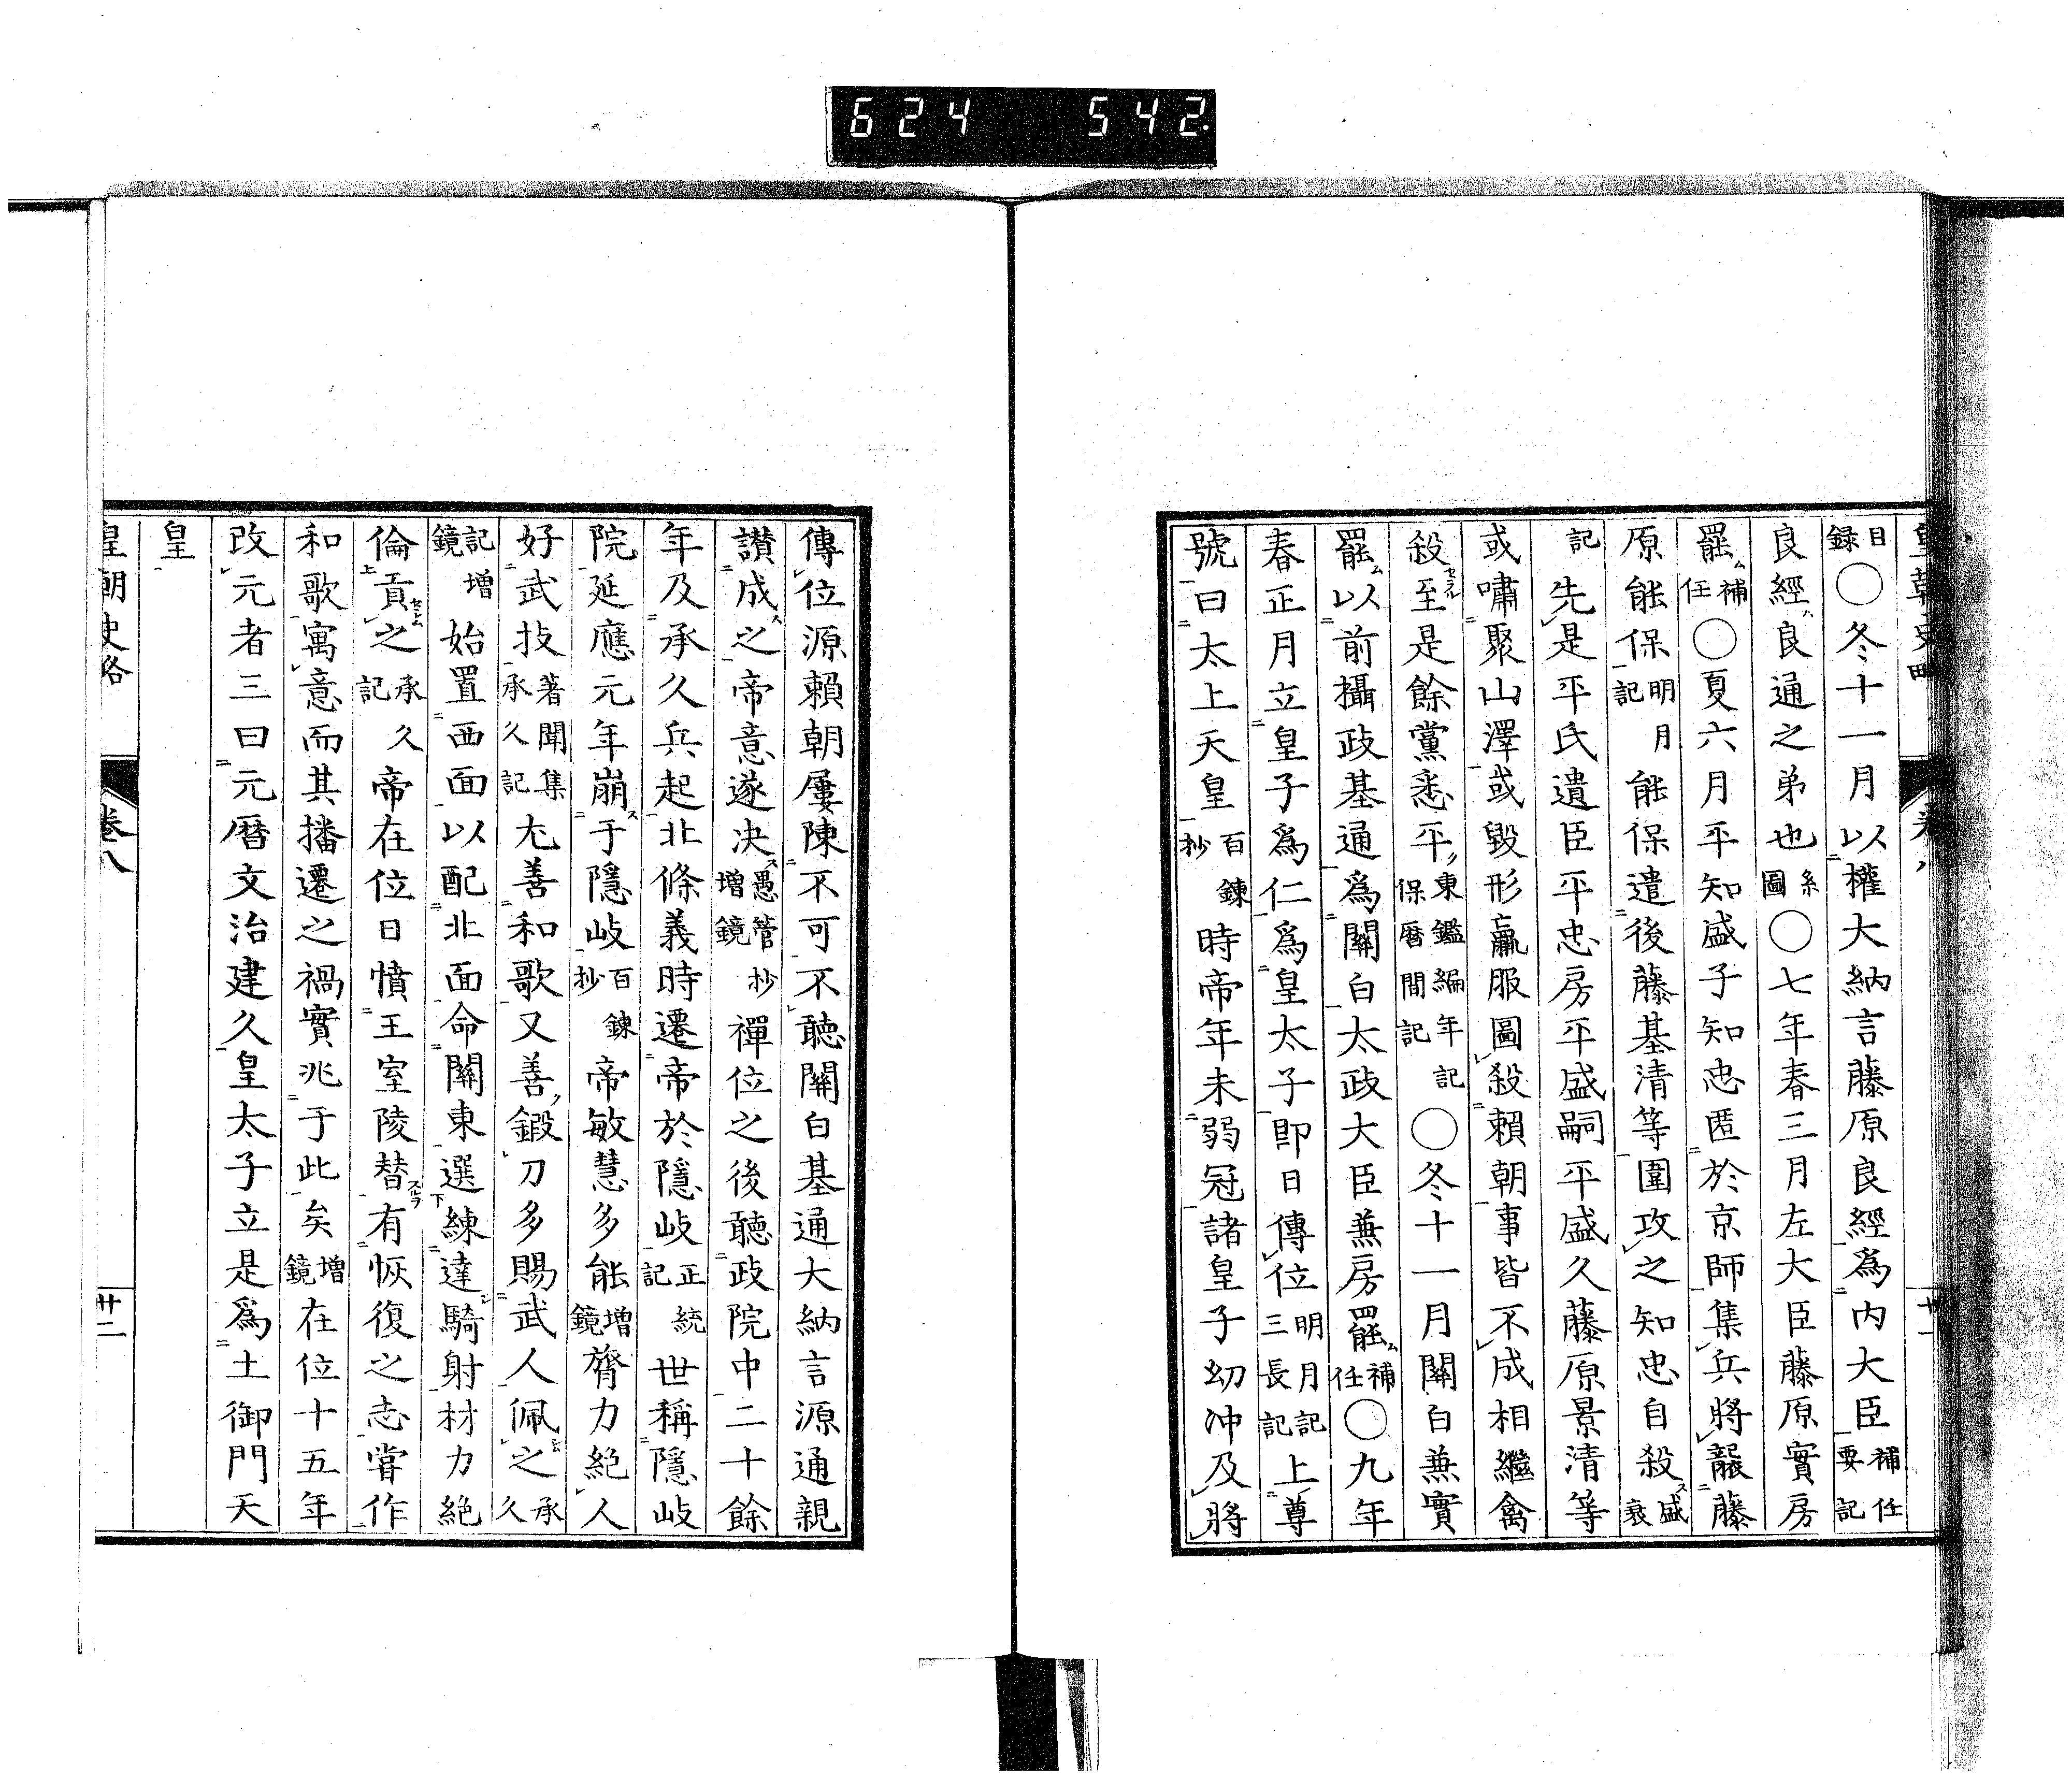 624 542
皇朝史略 卷八 廿一
目録○冬十一月以權大納言藤原良經爲内大臣補任要記
良經良通之弟也系圖○七年春三月左大臣藤原實房
罷ム補任○夏六月平知盛子知忠匿於京師集兵將襲藤
原能保明月記能保遣後藤基清等圍攻之知忠自殺ス盛衰
記先是平氏遺臣平忠房平盛嗣平盛久藤原景清等
或嘯聚山澤或毀形羸服圖殺賴朝事皆不成相繼禽
殺セラル至是餘黨悉平東鑑編年記保曆間記○冬十一月關白兼實
罷ム以前攝政基通爲關白太政大臣兼房罷ム補任○九年
春正月立皇子爲仁爲皇太子即日傳位明月記三長記上尊
號曰太上天皇百鍊抄時帝年未弱冠諸皇子幼冲及將
傳位源賴朝屢陳不可不聽關白基通大納言源通親
讃成ス之帝意遂决ス愚管抄增鏡禪位之後聽政院中二十餘
年及承久兵起北條義時遷帝於隱岐正統記世稱隱岐
院延應元年崩ス于隱岐百鍊抄帝敏慧多能增鏡膂力絶人
好武技著聞集承久記尤善和歌又善鍛刀多賜武人佩之承久
記增鏡始置西面以配北面命關東選練達騎射材力絶
倫貢セシム之承久記帝在位日憤王室陵替スルヲ有恢復之志嘗作
和歌寓意而其播遷之禍實兆于此矣增鏡在位十五年
改元者三曰元曆文治建久皇太子立是爲土御門天
皇
皇朝史略 卷八 廿二